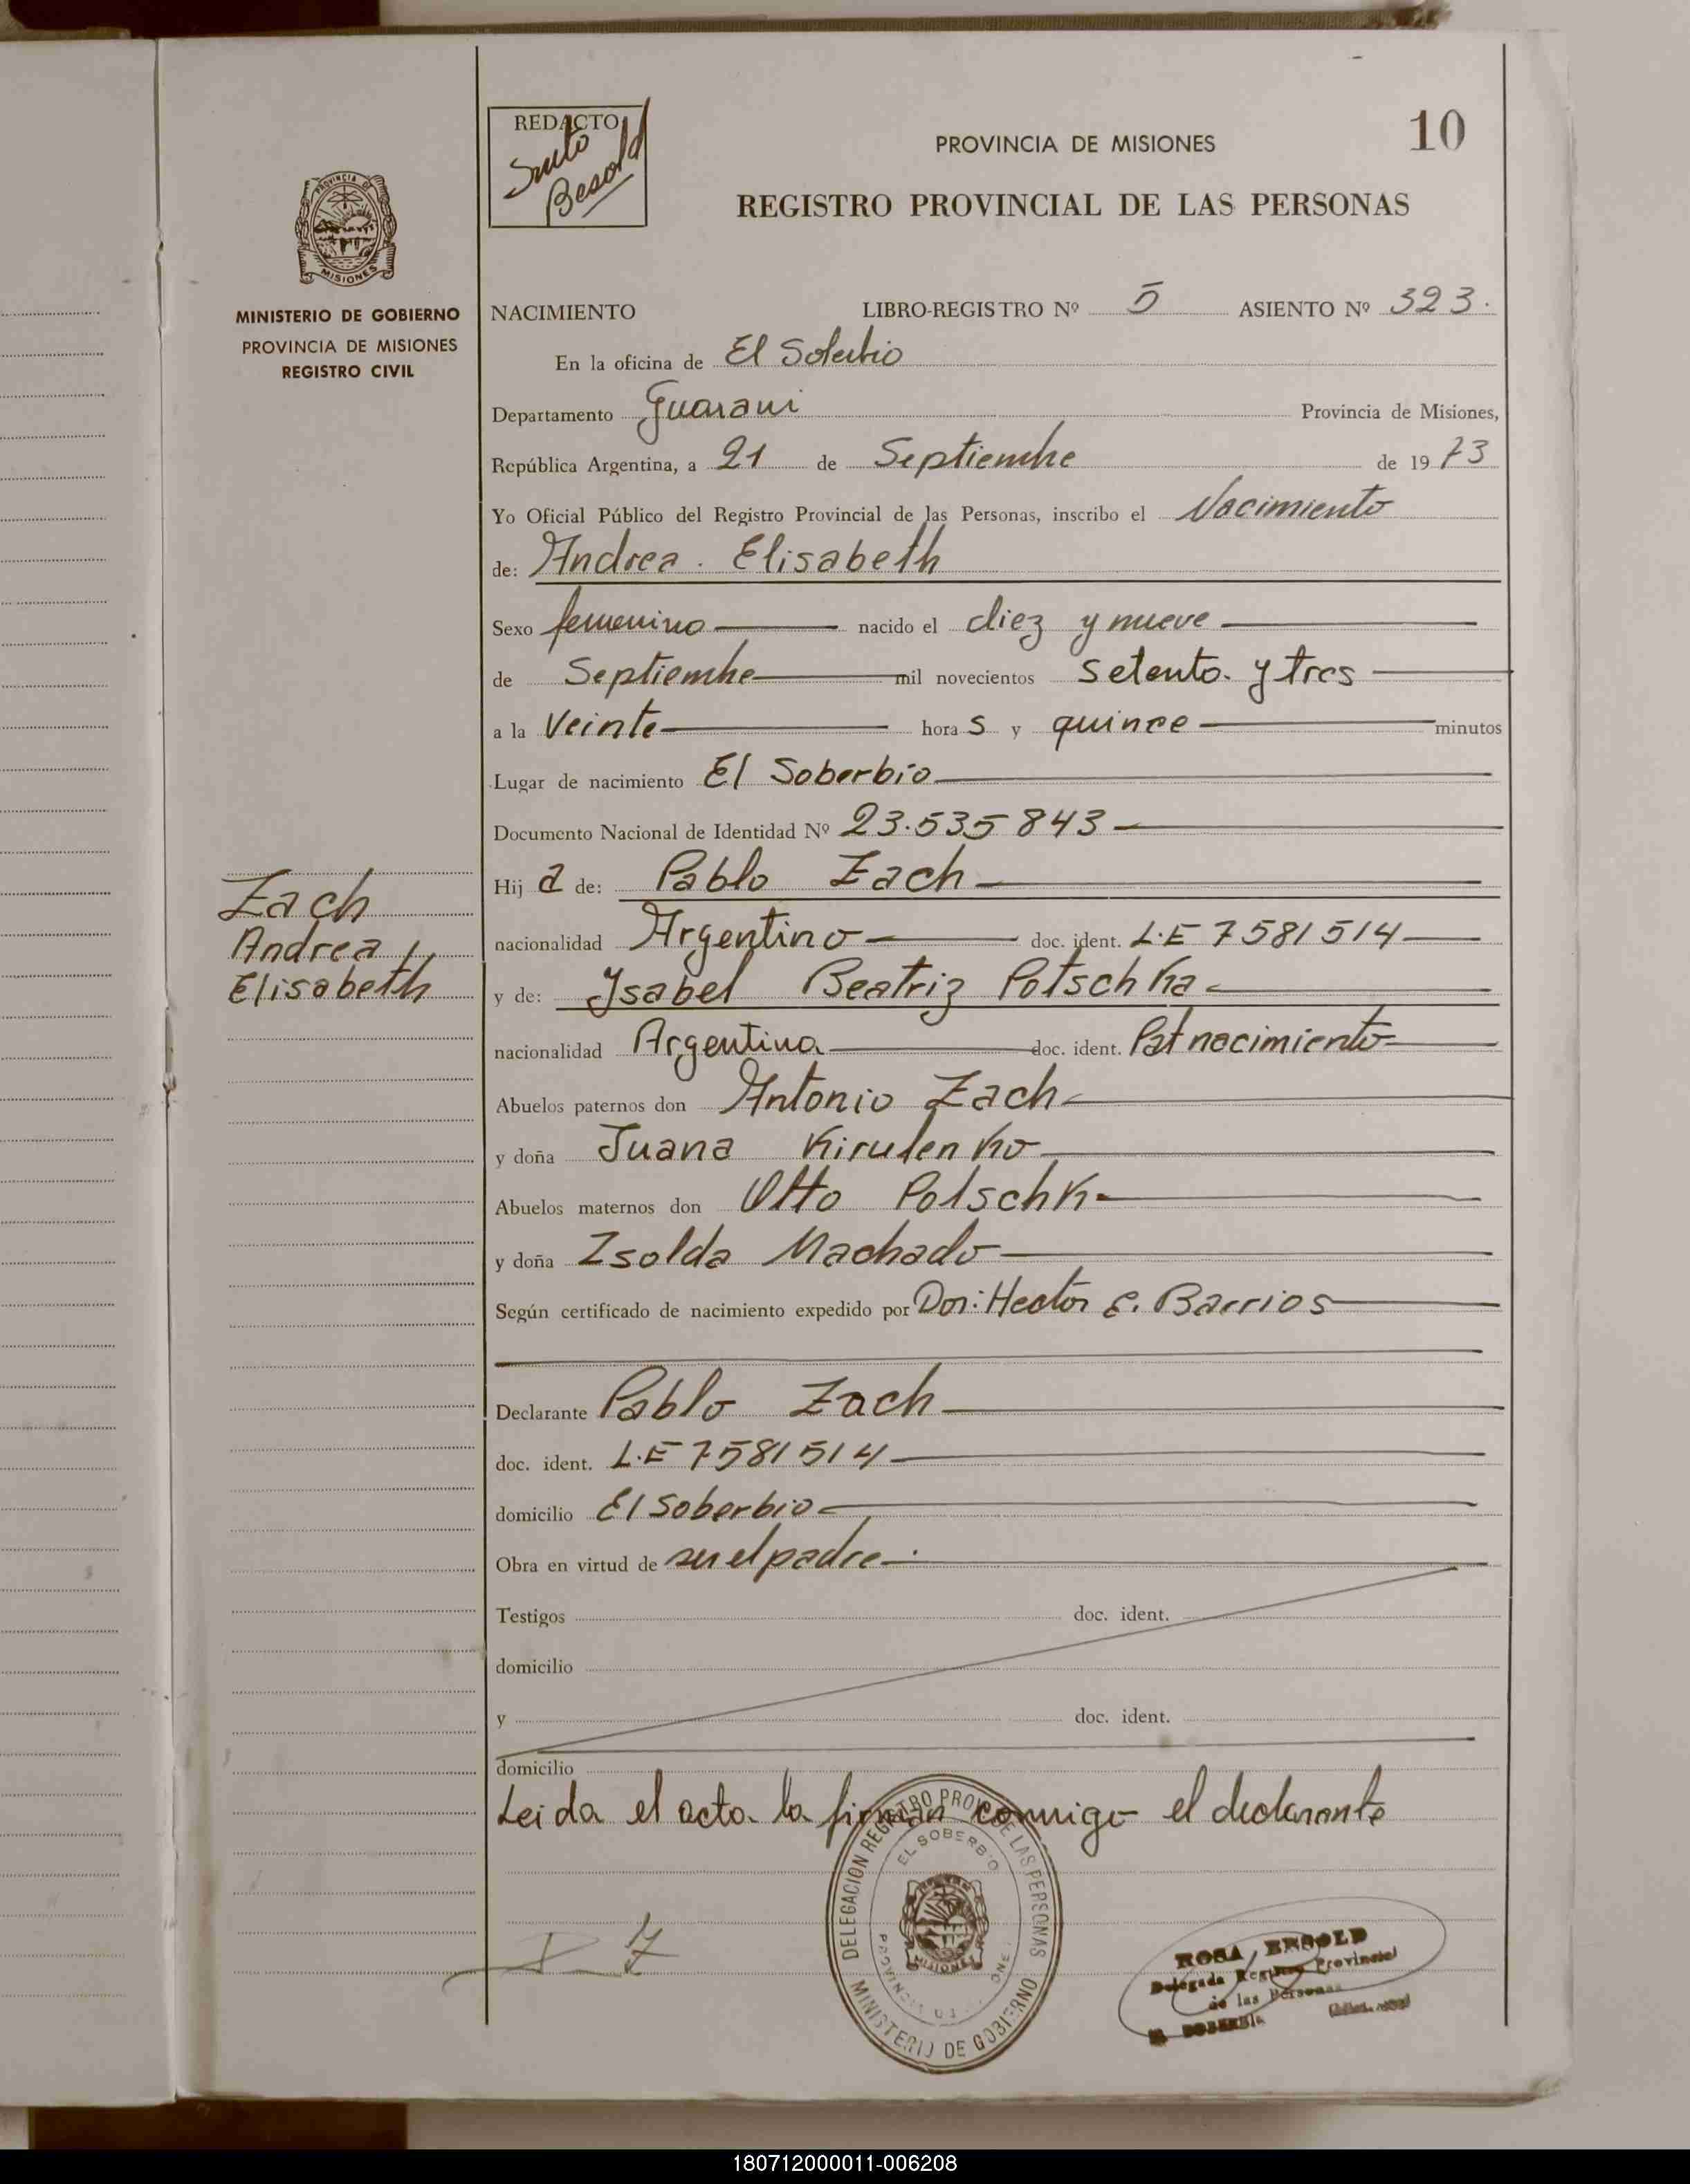 REDACTO
Besold
PROVINCIA DE MISIONES
10
REGISTRO PROVINCIAL DE LAS PERSONAS
PROVINCIA DE
MISIONES
MINISTERIO DE GOBIERNO
PROVINCIA DE MISIONES
REGISTRO CIVIL
NACIMIENTO LIBRO-REGISTRO Nº 5 ASIENTO Nº 323.
En la oficina de El Soberbio
Departamento Guarani Provincia de Misiones,
República Argentina, a 21 de Septiembre de 19 73
Yo Oficial Público del Registro Provincial de las Personas, inscribo el Nacimiento
de: Andrea. Elisabeth
Sexo femenino nacido el diez y nueve
de Septiembre mil novecientos setenta y tres
a la Veinte hora s y quince minutos
Lugar de nacimiento El Soberbio
Documento Nacional de Identidad Nº 23.535 843
Hij a de: Pablo Zach
Zach
Andrea
Elisabeth
nacionalidad Argentino doc. ident. L.E 7581514
y de: Ysabel Beatriz Potschka
nacionalidad Argentina doc. ident. Pat nacimiento
Abuelos paternos don Antonio Zach
y doña Juana Kirulenko
Abuelos maternos don Otto Potschk
y doña Isolda Machado
Según certificado de nacimiento expedido por Don: Hector E. Barrios
Declarante Pablo Zach
doc. ident. L.E 7581514
domicilio El Soberbio
Obra en virtud de ser el padre.
Testigos doc. ident.
domicilio
y doc. ident.
domicilio
Leida el acta la firman conmigo el declarante
DELEGACION REGISTRO PROV. DE LAS PERSONAS
EL SOBERBIO
MISIONES
MINISTERIO DE GOBIERNO
ROSA BESOLD
Delegada Registro Provincial
de las Personas
EL SOBERBIO
180712000011-006208